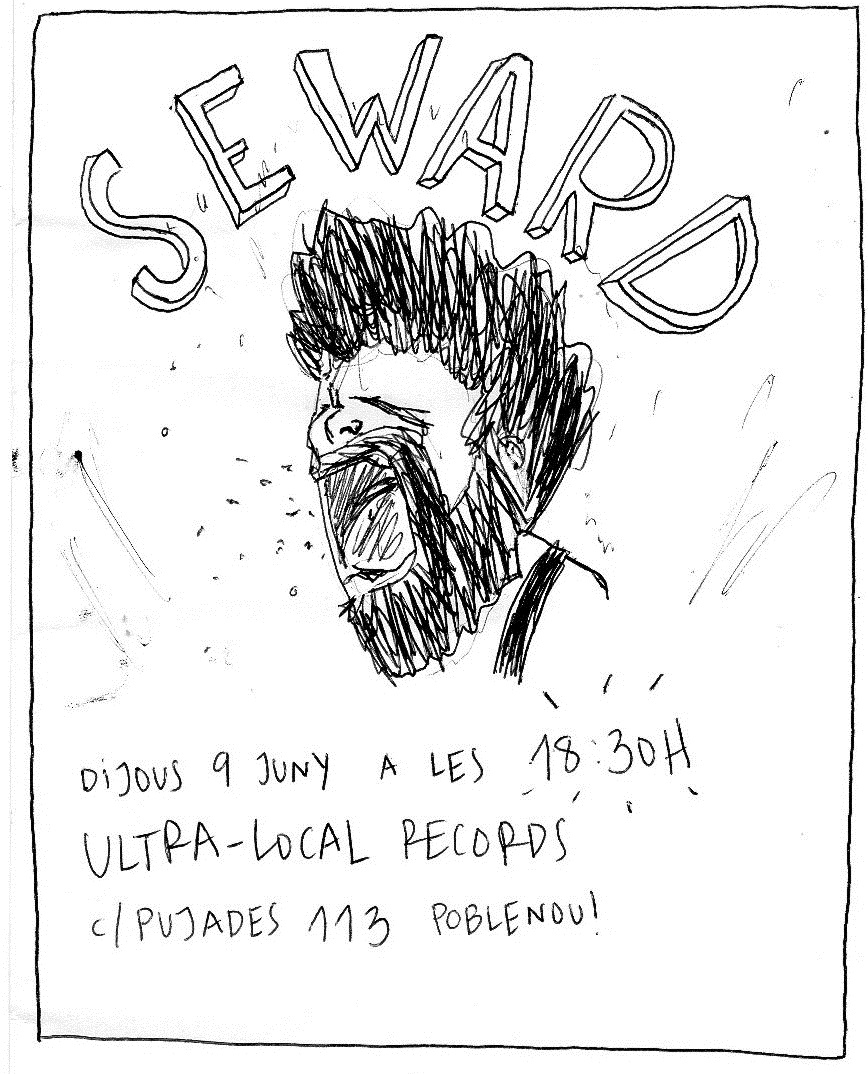 SEWARD
DiJOUS 9 JUNY A LES 18:30H
ULTRA-LOCAL RECORDS
c/PUJADES 113 POBLENOU!